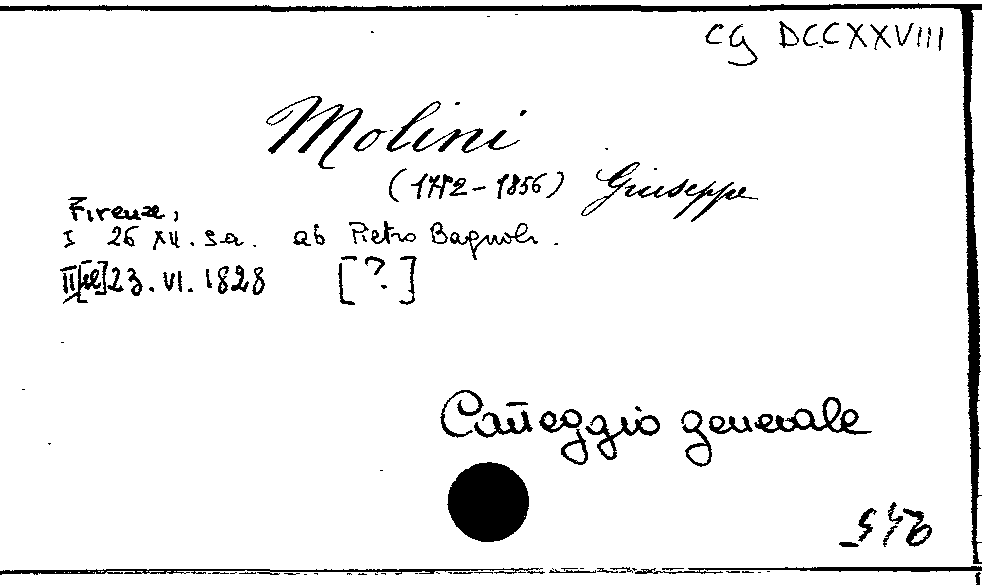 CG DCCXXVIII
Molini
(1772-1856) Giuseppe
Firenze,
I 26 XII. s.a. ab Pietro Bagnoli.
II 23. VI. 1828 [?]
Carteggio generale